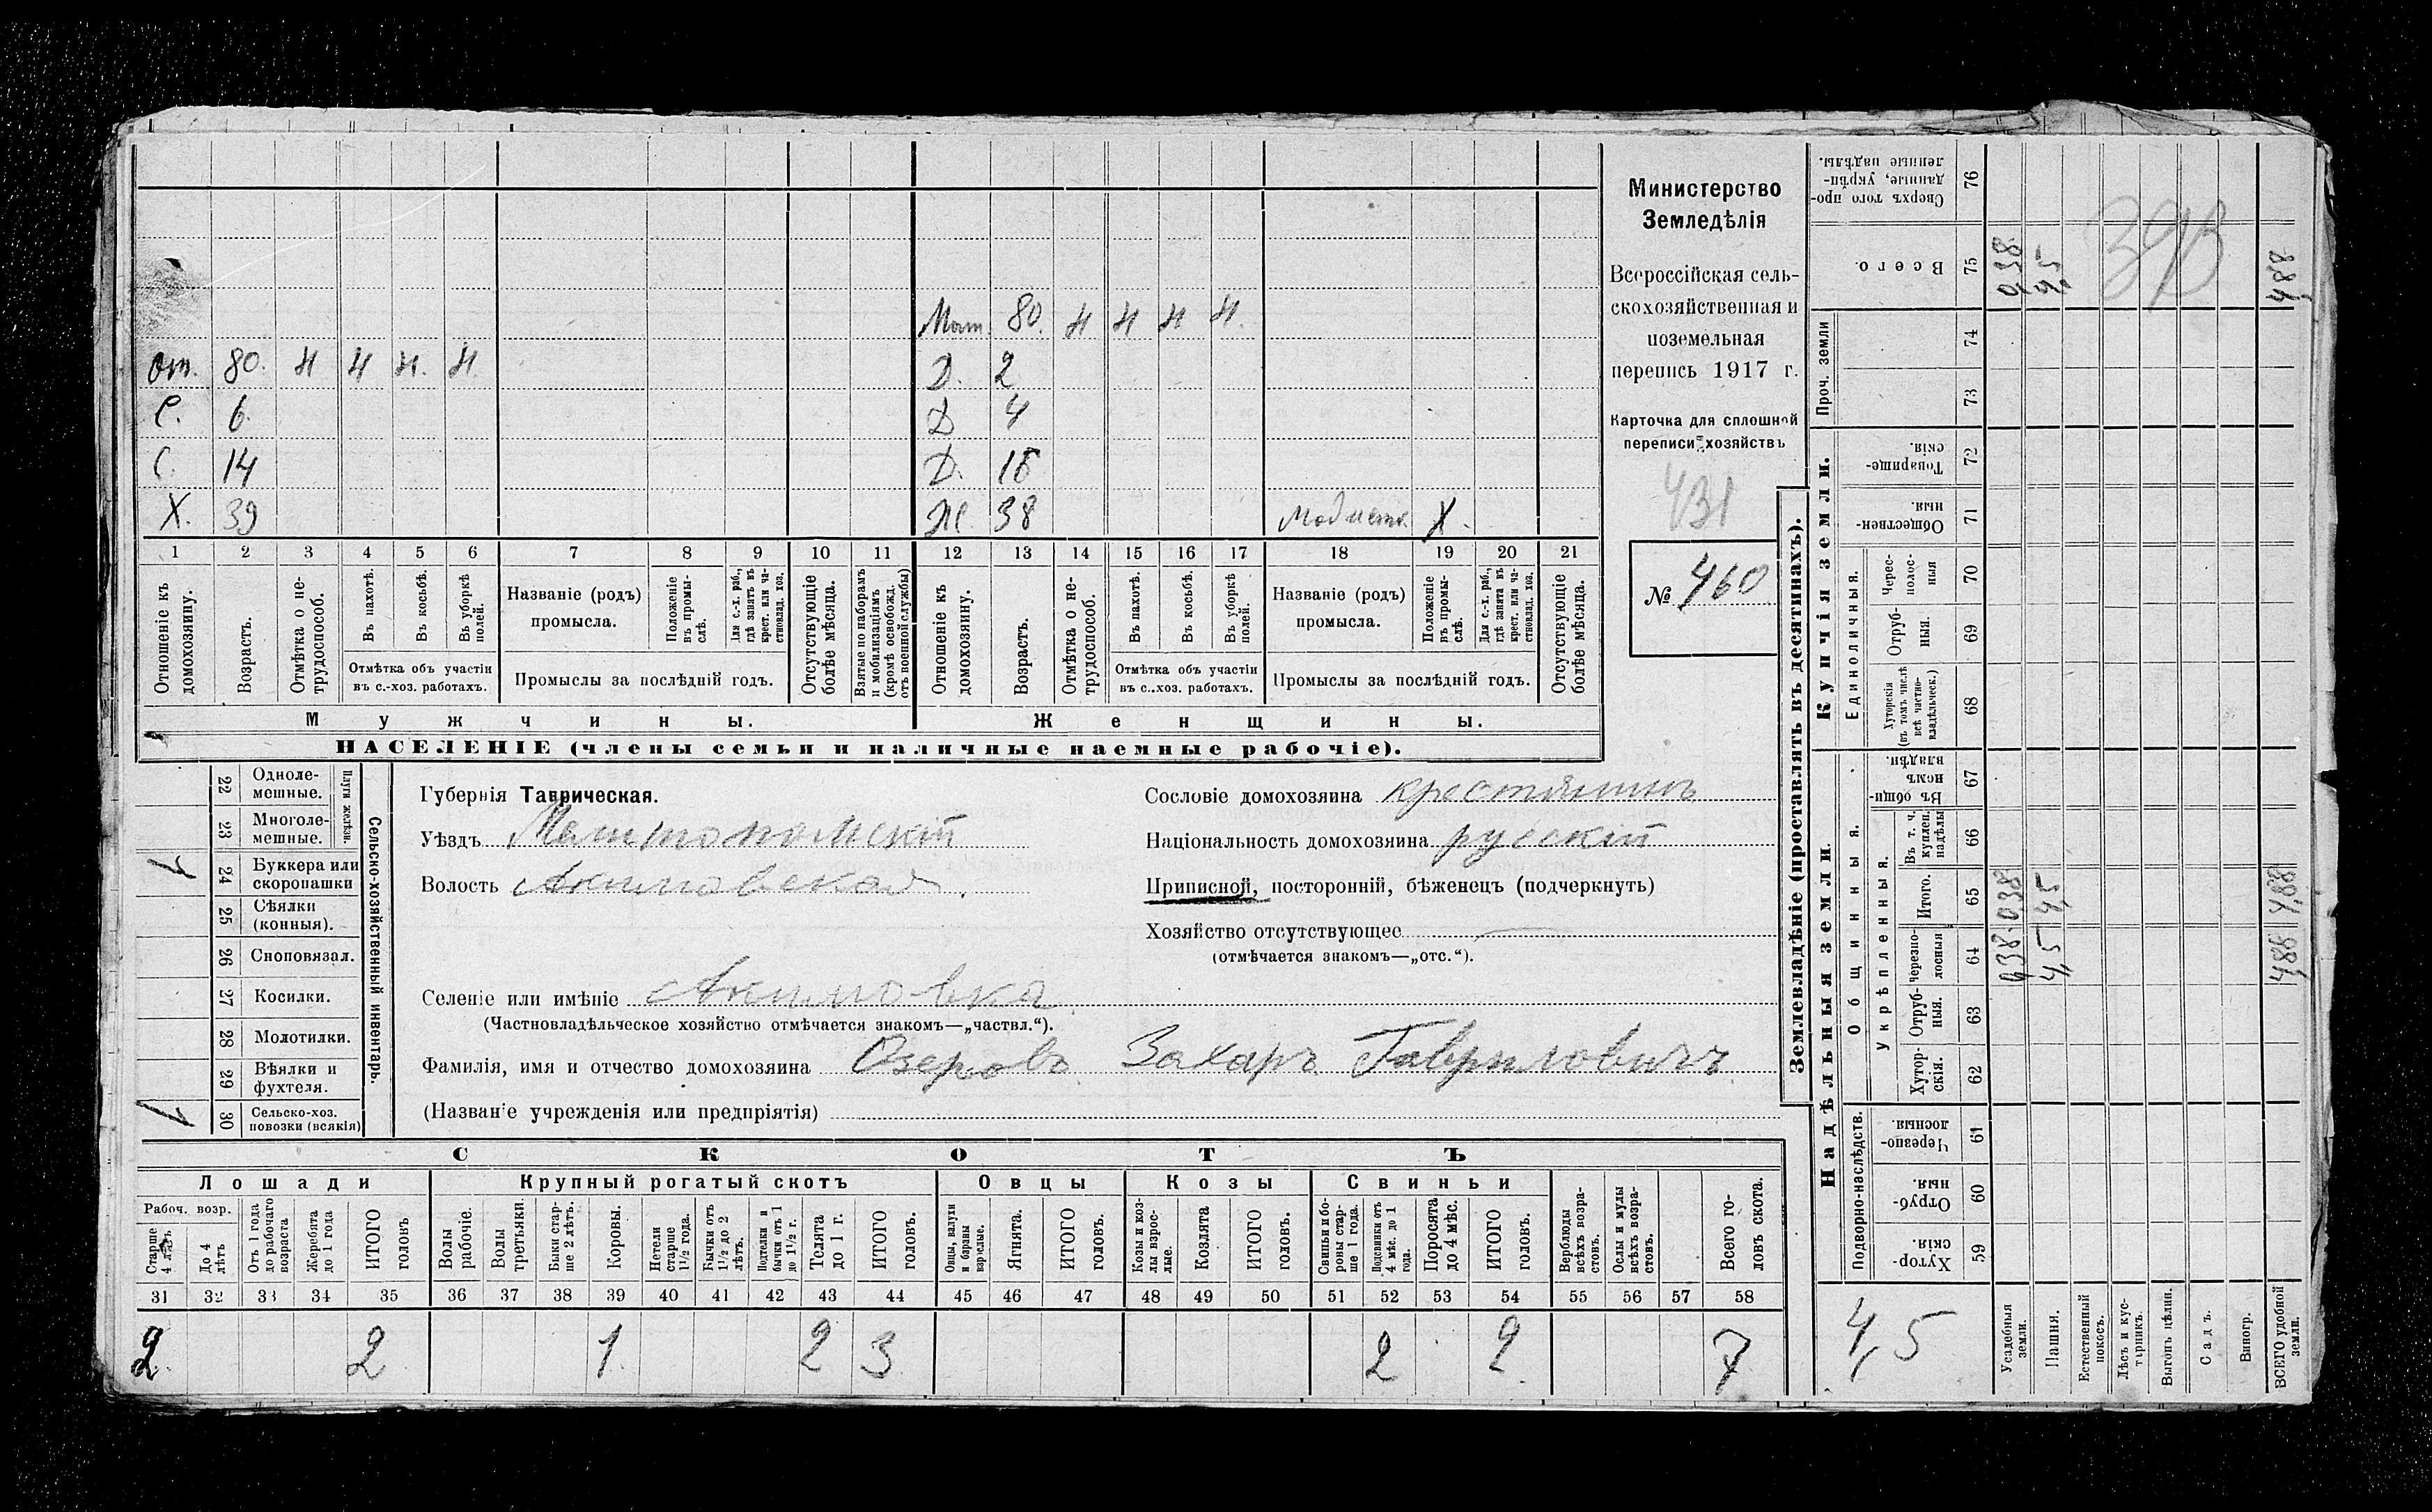 Мат. 80. Н Н Н Н.
От. 80. Н Н Н. Н. Д. 2
С. 6. Д 4
С. 14 Д.
Х. 39 Ж. 38 Модистк. Х.
1 2 3 4 5 6 7 8 9 10 11 12 13 14 15 16 17 18 19 20 21
Отношеніе къ домохозяину.
Возрастъ.
Отмѣтка о не-
трудоспособ.
Въ пахотѣ.
Въ косьбѣ.
Въ уборкѣ
полей.
Отмѣтка объ участіи
въ с.-хоз. работахъ.
Названіе (родъ)
промысла.
Положеніе
въ промы-
слѣ.
Для с.-х. раб.,
гдѣ занятъ въ
крест. или ча-
стновлад. хоз.
Промыслы за послѣдній годъ.
Отсутствующіе
болѣе мѣсяца.
Взятые по наборамъ
и мобилизаціямъ
(кромѣ освобожд.
отъ военной службы)
Отношеніе къ
домохозяину.
Возрастъ.
Отмѣтка о не-
трудоспособ.
Въ пахотѣ.
Въ косьбѣ.
Въ уборкѣ
полей.
Отмѣтка объ участіи
въ с.-хоз. работахъ.
Названіе (родъ)
промысла.
Положеніе
въ промы-
слѣ.
Для с.-х. раб.,
гдѣ занята въ
крест. или ча-
стновлад. хоз.
Промыслы за послѣдній годъ.
Отсутствующіе
болѣе мѣсяца.
Мужчины. Женщины.
НАСЕЛЕНІЕ (члены семьи и наличные наемные рабочіе).
Министерство
Земледѣлія
Всероссійская сель-
скохозяйственная и
поземельная
перепись 1917 г.
Карточка для сплошной
переписи хозяйствъ
431
№ 460
22 Одноле-
мешные.
23 Многоле-
мешные.
Плуги желѣзн.
24 Буккера или
скоропашки
1
25 Сѣялки
(конныя).
26 Сноповязал.
27 Косилки.
28 Молотилки.
29 Вѣялки и
фухтеля.
30 Сельско-хоз.
повозки (всякія)
1
Сельско-хозяйственный инвентарь.
Губернія Таврическая.
Уѣздъ Мелитопольскій
Волость Акимовская.
Селеніе или имѣніе Акимовка
(Частновладѣльческое хозяйство отмѣчается знакомъ—„частвл.“).
Фамилія, имя и отчество домохозяина Озеровъ Захаръ Гавриловичъ
(Названіе учрежденія или предпріятія)
Сословіе домохозяина крестьянинъ
Національность домохозяина русскій
Приписной, посторонній, бѣженецъ (подчеркнуть)
Хозяйство отсутствующее
(отмѣчается знакомъ—„отс.“).
СКОТЪ
Лошади Крупный рогатый скотъ Овцы Козы Свиньи
Рабоч. возр.
Старше
4 лѣтъ
До 4
лѣтъ
Отъ 1 года
до рабочаго
возраста
Жеребята
до 1 года
ИТОГО
головъ
Волы
рабочіе.
Волы
третьяки.
Быки стар-
ше 2 лѣтъ.
Коровы.
Нетели
старше
1½ года.
Бычки отъ
1½ до 2
лѣтъ.
Подтелки и
бычки отъ 1
до 1½ г.
Телята
до 1 г.
ИТОГО
головъ.
Овцы, валухи
и бараны
взрослые.
Ягнята.
ИТОГО
головъ.
Козы и коз-
лы взрос-
лые.
Козлята
ИТОГО
головъ.
Свиньи и бо-
ровы стар-
ше 1 года.
Подсвинки отъ
4 мѣс. до 1
года.
Поросята
до 4 мѣс.
ИТОГО
головъ.
Верблюды
всѣхъ возра-
стовъ.
Ослы и мулы
всѣхъ возра-
стовъ.
Всего го-
ловъ скота.
31 32 33 34 35 36 37 38 39 40 41 42 43 44 45 46 47 48 49 50 51 52 53 54 55 56 57 58
2 2 1 2 3 2 2 7
Землевладѣніе (проставлять въ десятинахъ).
Надѣльныя земли.
Купчія земли.
Проч. земли
Подворно-наслѣдств.
Общинныя.
Укрѣпленныя.
Единоличныя.
59 Хутор-
скія.
60 Отруб-
ныя.
61 Черезпо-
лосныя
62 Хутор-
скія.
63 Отруб-
ныя.
64 Черезпо-
лосныя
65 Итого.
66 Въ т. ч.
куплен.
надѣлы
67 Въ общи-
номъ
владѣн.
68 Хуторскія
(въ томъ числѣ
всѣ частно-
владѣльческ.)
69 Отруб-
ныя.
70 Черес-
полос-
ныя
71 Обществен-
ныя.
72 Товарище-
скія.
73
74
75 Всего.
76 Сверхъ того про-
данные, укрѣп-
ленные надѣлы.
Усадебныя
земли.
0,38 0,38 0,38
Пашня.
4,5 4,5
Естественный
покосъ.
Лѣсъ и кус-
тарникъ.
Выгонъ цѣлин.
Садъ.
Виногр.
ВСЕГО удобной
земли.
4,88 4,88 4,88
4,5
393